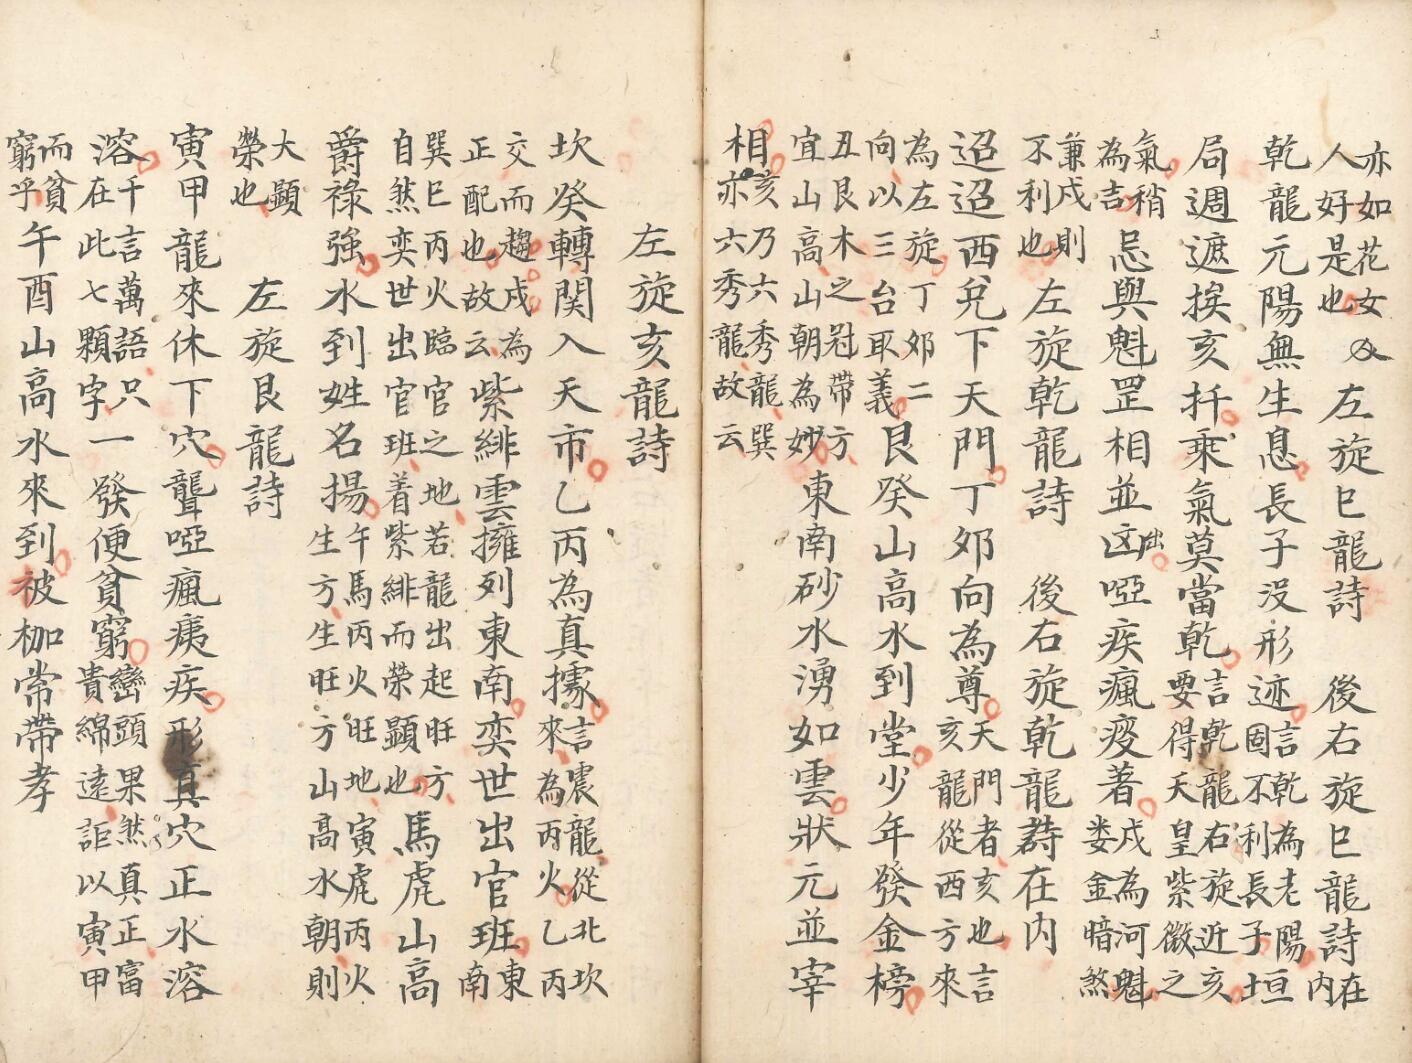 亦如花女
人好是也
左旋巳龍詩　後右旋巳龍詩在內
乾龍元陽無生息長子没形迹言乾為老陽
固不利長子垣
局週遮挨亥扦乘氣莫當乾言乾龍右旋近亥
要得天皇紫微之
氣稍
為吉忌與魁罡相並出凶啞疾瘋疫著戌為河魁
婁金暗煞
兼戌則
不利也左旋乾龍詩　後右旋乾龍詩在內
迢迢西兌下天門丁邜向為尊天門者亥也言
亥龍從西方來
為左旋丁邜二
向以三台取義艮癸山高水到堂少年發金榜
丑艮木之冠帶方
宜山高山朝為妙東南砂水湧如雲狀元並宰
相亥乃六秀龍巽
亦六秀龍故云
左旋亥龍詩
坎癸轉関入天市乙丙為真據言震龍從北坎
來為丙火乙丙
交而趨戌為
正配也故云紫緋雲擁列東南奕世出官班東
南
巽巳丙火臨官之地若龍出起旺方
自然奕世出官班着紫緋而榮顯也馬虎山高
爵祿強水到姓名揚午馬丙火旺地寅虎丙火
生方生旺方山高水朝則
大顯
榮也　左旋艮龍詩
寅甲龍來休下穴聾啞瘋痍疾形真穴正水溶
溶千言萬語只
在此七顆字一發便貧窮巒頭果然真正富
貴綿遠詎以寅甲
而貧
窮乎午酉山高水來到被枷常帶孝